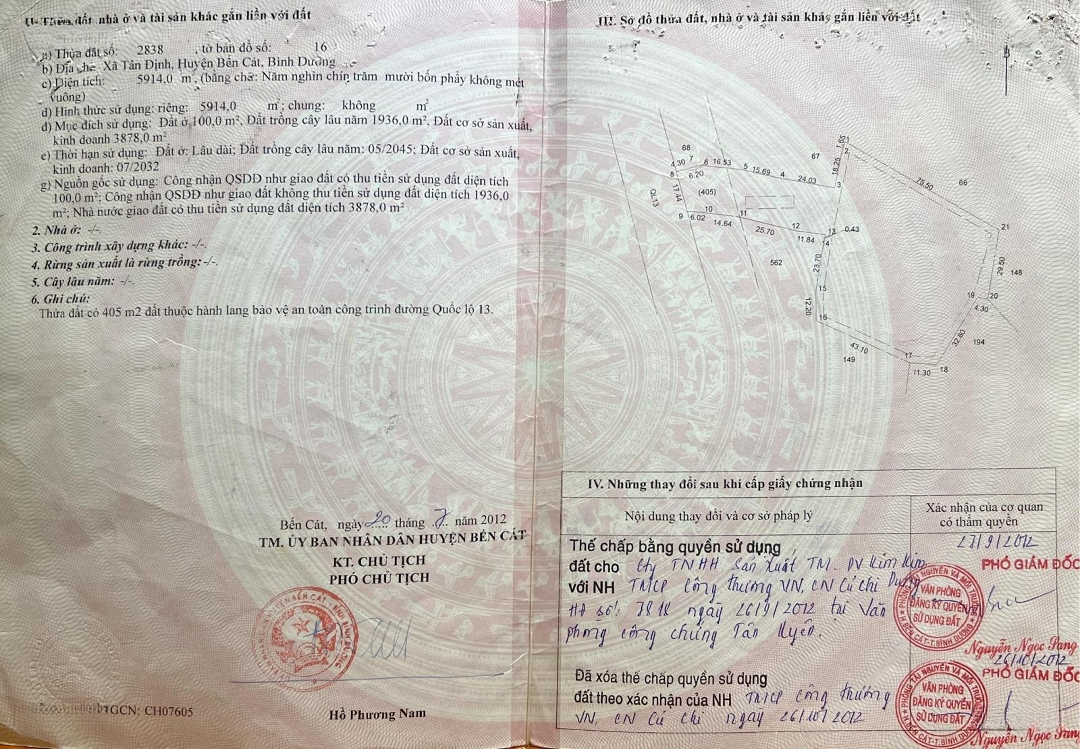 đất, nhà ở và tài sản khác gắn liền với đất
a) Thửa đất số: 2838 , tờ bản đồ số: 16
b) Địa chỉ: Xã Tân Định, Huyện Bến Cát, Bình Dương
c) Diện tích: 5914,0 m², (bằng chữ: Năm nghìn chín trăm mười bốn phẩy không mét
vuông)
d) Hình thức sử dụng: riêng: 5914,0 m²; chung: không m²
đ) Mục đích sử dụng: Đất ở 100,0 m², Đất trồng cây lâu năm 1936,0 m², Đất cơ sở sản xuất,
kinh doanh 3878,0 m²
e) Thời hạn sử dụng: Đất ở: Lâu dài; Đất trồng cây lâu năm: 05/2045; Đất cơ sở sản xuất,
kinh doanh: 07/2032
g) Nguồn gốc sử dụng: Công nhận QSDĐ như giao đất có thu tiền sử dụng đất diện tích
100,0 m²; Công nhận QSDĐ như giao đất không thu tiền sử dụng đất diện tích 1936,0
m²; Nhà nước giao đất có thu tiền sử dụng đất diện tích 3878,0 m²
2. Nhà ở: -/-.
3. Công trình xây dựng khác: -/-.
4. Rừng sản xuất là rừng trồng: -/-.
5. Cây lâu năm: -/-.
6. Ghi chú:
Thửa đất có 405 m2 đất thuộc hành lang bảo vệ an toàn công trình đường Quốc lộ 13.
Bến Cát, ngày 20 tháng 7 năm 2012
TM. ỦY BAN NHÂN DÂN HUYỆN BẾN CÁT
KT. CHỦ TỊCH
PHÓ CHỦ TỊCH
Hồ Phương Nam
GCN: CH07605
III. Sơ đồ thửa đất, nhà ở và tài sản khác gắn liền với đất
B
68
67
1.65
1
2
4.30
7
6
16.53
5
15.69
4
24.03
3
18.25
75.50
66
8
6.20
(405)
QL13
17.44
9
6.02
10
14.64
11
25.70
12
11.84
13
0.43
14
21
562
23.70
15
29.50
148
12.20
16
19
20
4.30
43.10
32.80
194
149
17
11.30
18
IV. Những thay đổi sau khi cấp giấy chứng nhận
Nội dung thay đổi và cơ sở pháp lý
Xác nhận của cơ quan
có thẩm quyền
Thế chấp bằng quyền sử dụng
đất cho Cty TNHH Sản Xuất TM-DV Kim Kim
với NH TMCP Công thương VN, CN Củ Chi Dưng
HĐ số: 7818 ngày 26/9/2012 tại Văn
phòng công chứng Tân Uyên.
27/9/2012
PHÓ GIÁM ĐỐC
VĂN PHÒNG
ĐĂNG KÝ QUYỀN
SỬ DỤNG ĐẤT
Nguyễn Ngọc Sang
Đã xóa thế chấp quyền sử dụng
đất theo xác nhận của NH TMCP Công thương
VN, CN Củ Chi ngày 26/10/2012
26/10/2012
PHÓ GIÁM ĐỐC
VĂN PHÒNG
ĐĂNG KÝ QUYỀN
SỬ DỤNG ĐẤT
Nguyễn Ngọc Sang